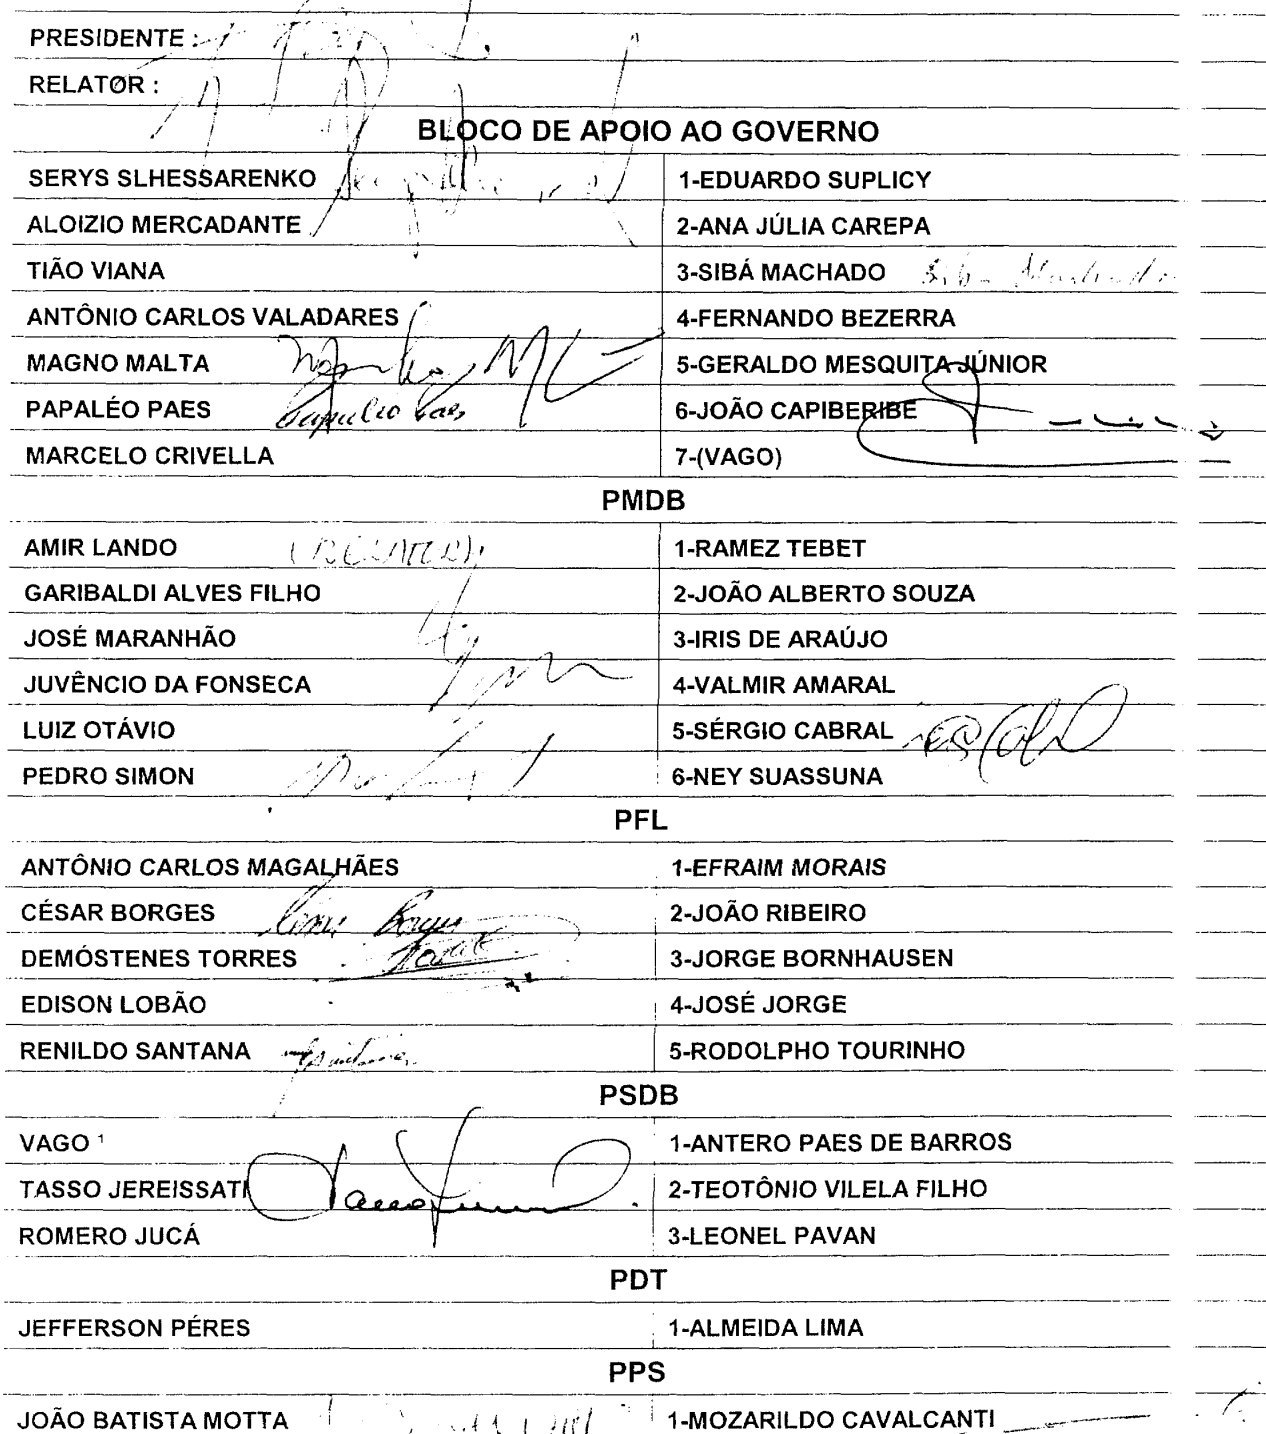 PRESIDENTE :
RELATOR :
BLOCO DE APOIO AO GOVERNO
SERYS SLHESSARENKO 1-EDUARDO SUPLICY
ALOIZIO MERCADANTE 2-ANA JÚLIA CAREPA
TIÃO VIANA 3-SIBÁ MACHADO Sibá Machado
ANTÔNIO CARLOS VALADARES 4-FERNANDO BEZERRA
MAGNO MALTA 5-GERALDO MESQUITA JÚNIOR
PAPALÉO PAES Papaléo Paes 6-JOÃO CAPIBERIBE
MARCELO CRIVELLA 7-(VAGO)
PMDB
AMIR LANDO (RELATOR) 1-RAMEZ TEBET
GARIBALDI ALVES FILHO 2-JOÃO ALBERTO SOUZA
JOSÉ MARANHÃO 3-IRIS DE ARAÚJO
JUVÊNCIO DA FONSECA 4-VALMIR AMARAL
LUIZ OTÁVIO 5-SÉRGIO CABRAL
PEDRO SIMON 6-NEY SUASSUNA
PFL
ANTÔNIO CARLOS MAGALHÃES 1-EFRAIM MORAIS
CÉSAR BORGES César Borges 2-JOÃO RIBEIRO
DEMÓSTENES TORRES 3-JORGE BORNHAUSEN
EDISON LOBÃO 4-JOSÉ JORGE
RENILDO SANTANA 5-RODOLPHO TOURINHO
PSDB
VAGO ¹ 1-ANTERO PAES DE BARROS
TASSO JEREISSATI 2-TEOTÔNIO VILELA FILHO
ROMERO JUCÁ 3-LEONEL PAVAN
PDT
JEFFERSON PÉRES 1-ALMEIDA LIMA
PPS
JOÃO BATISTA MOTTA 1-MOZARILDO CAVALCANTI